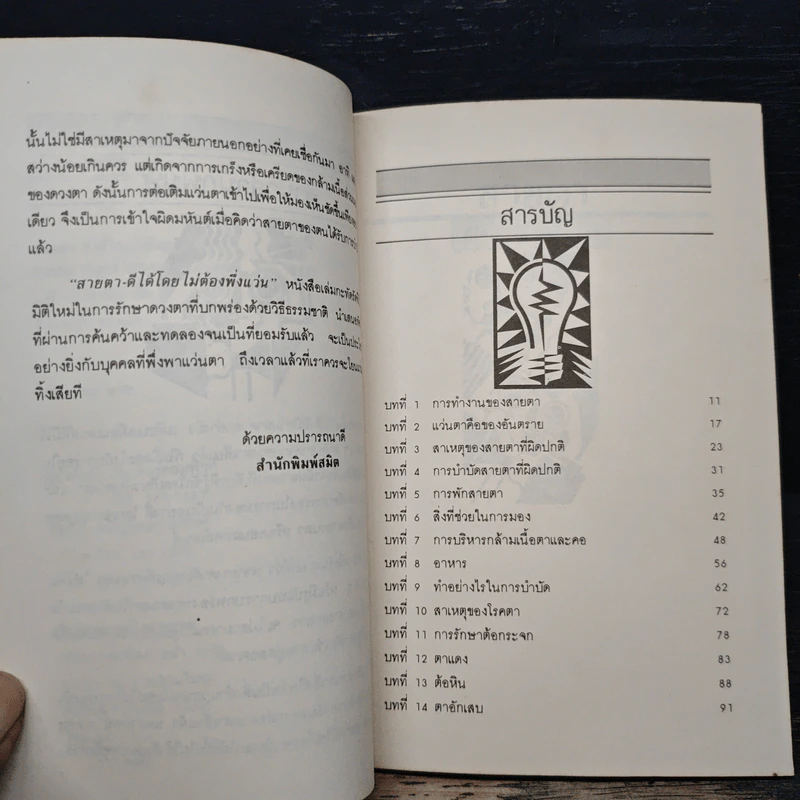 นั้นไม่ใช่มีสาเหตุมาจากปัจจัยภายนอกอย่างที่เคยเชื่อกันมา อาทิ
สว่างน้อยเกินควร แต่เกิดจากการเกร็งหรือเครียดของกล้ามเนื้อ
ของดวงตา ดังนั้นการต่อเติมแว่นตาเข้าไปเพื่อให้มองเห็นชัดขึ้น
เดียว จึงเป็นการเข้าใจผิดมหันต์เมื่อคิดว่าสายตาของตนได้รับการ
แล้ว
"สายตา-ดีได้โดยไม่ต้องพึ่งแว่น" หนังสือเล่มกะทัดรัด
มิติใหม่ในการรักษาดวงตาที่บกพร่องด้วยวิธีธรรมชาติ
ที่ผ่านการค้นคว้าและทดลองจนเป็นที่ยอมรับแล้ว จะเป็น
อย่างยิ่งกับบุคคลที่พึ่งพาแว่นตา ถึงเวลาแล้วที่เราควรจะโยน
ทิ้งเสียที
ด้วยความปรารถนาดี
สำนักพิมพ์สมิต
สารบัญ
บทที่ 1 การทำงานของสายตา 11
บทที่ 2 แว่นตาคือของอันตราย 17
บทที่ 3 สาเหตุของสายตาที่ผิดปกติ 23
บทที่ 4 การบำบัดสายตาที่ผิดปกติ 31
บทที่ 5 การพักสายตา 35
บทที่ 6 สิ่งที่ช่วยในการมอง 42
บทที่ 7 การบริหารกล้ามเนื้อตาและคอ 48
บทที่ 8 อาหาร 56
บทที่ 9 ทำอย่างไรในการบำบัด 62
บทที่ 10 สาเหตุของโรคตา 72
บทที่ 11 การรักษาต้อกระจก 78
บทที่ 12 ตาแดง 83
บทที่ 13 ต้อหิน 88
บทที่ 14 ตาอักเสบ 91